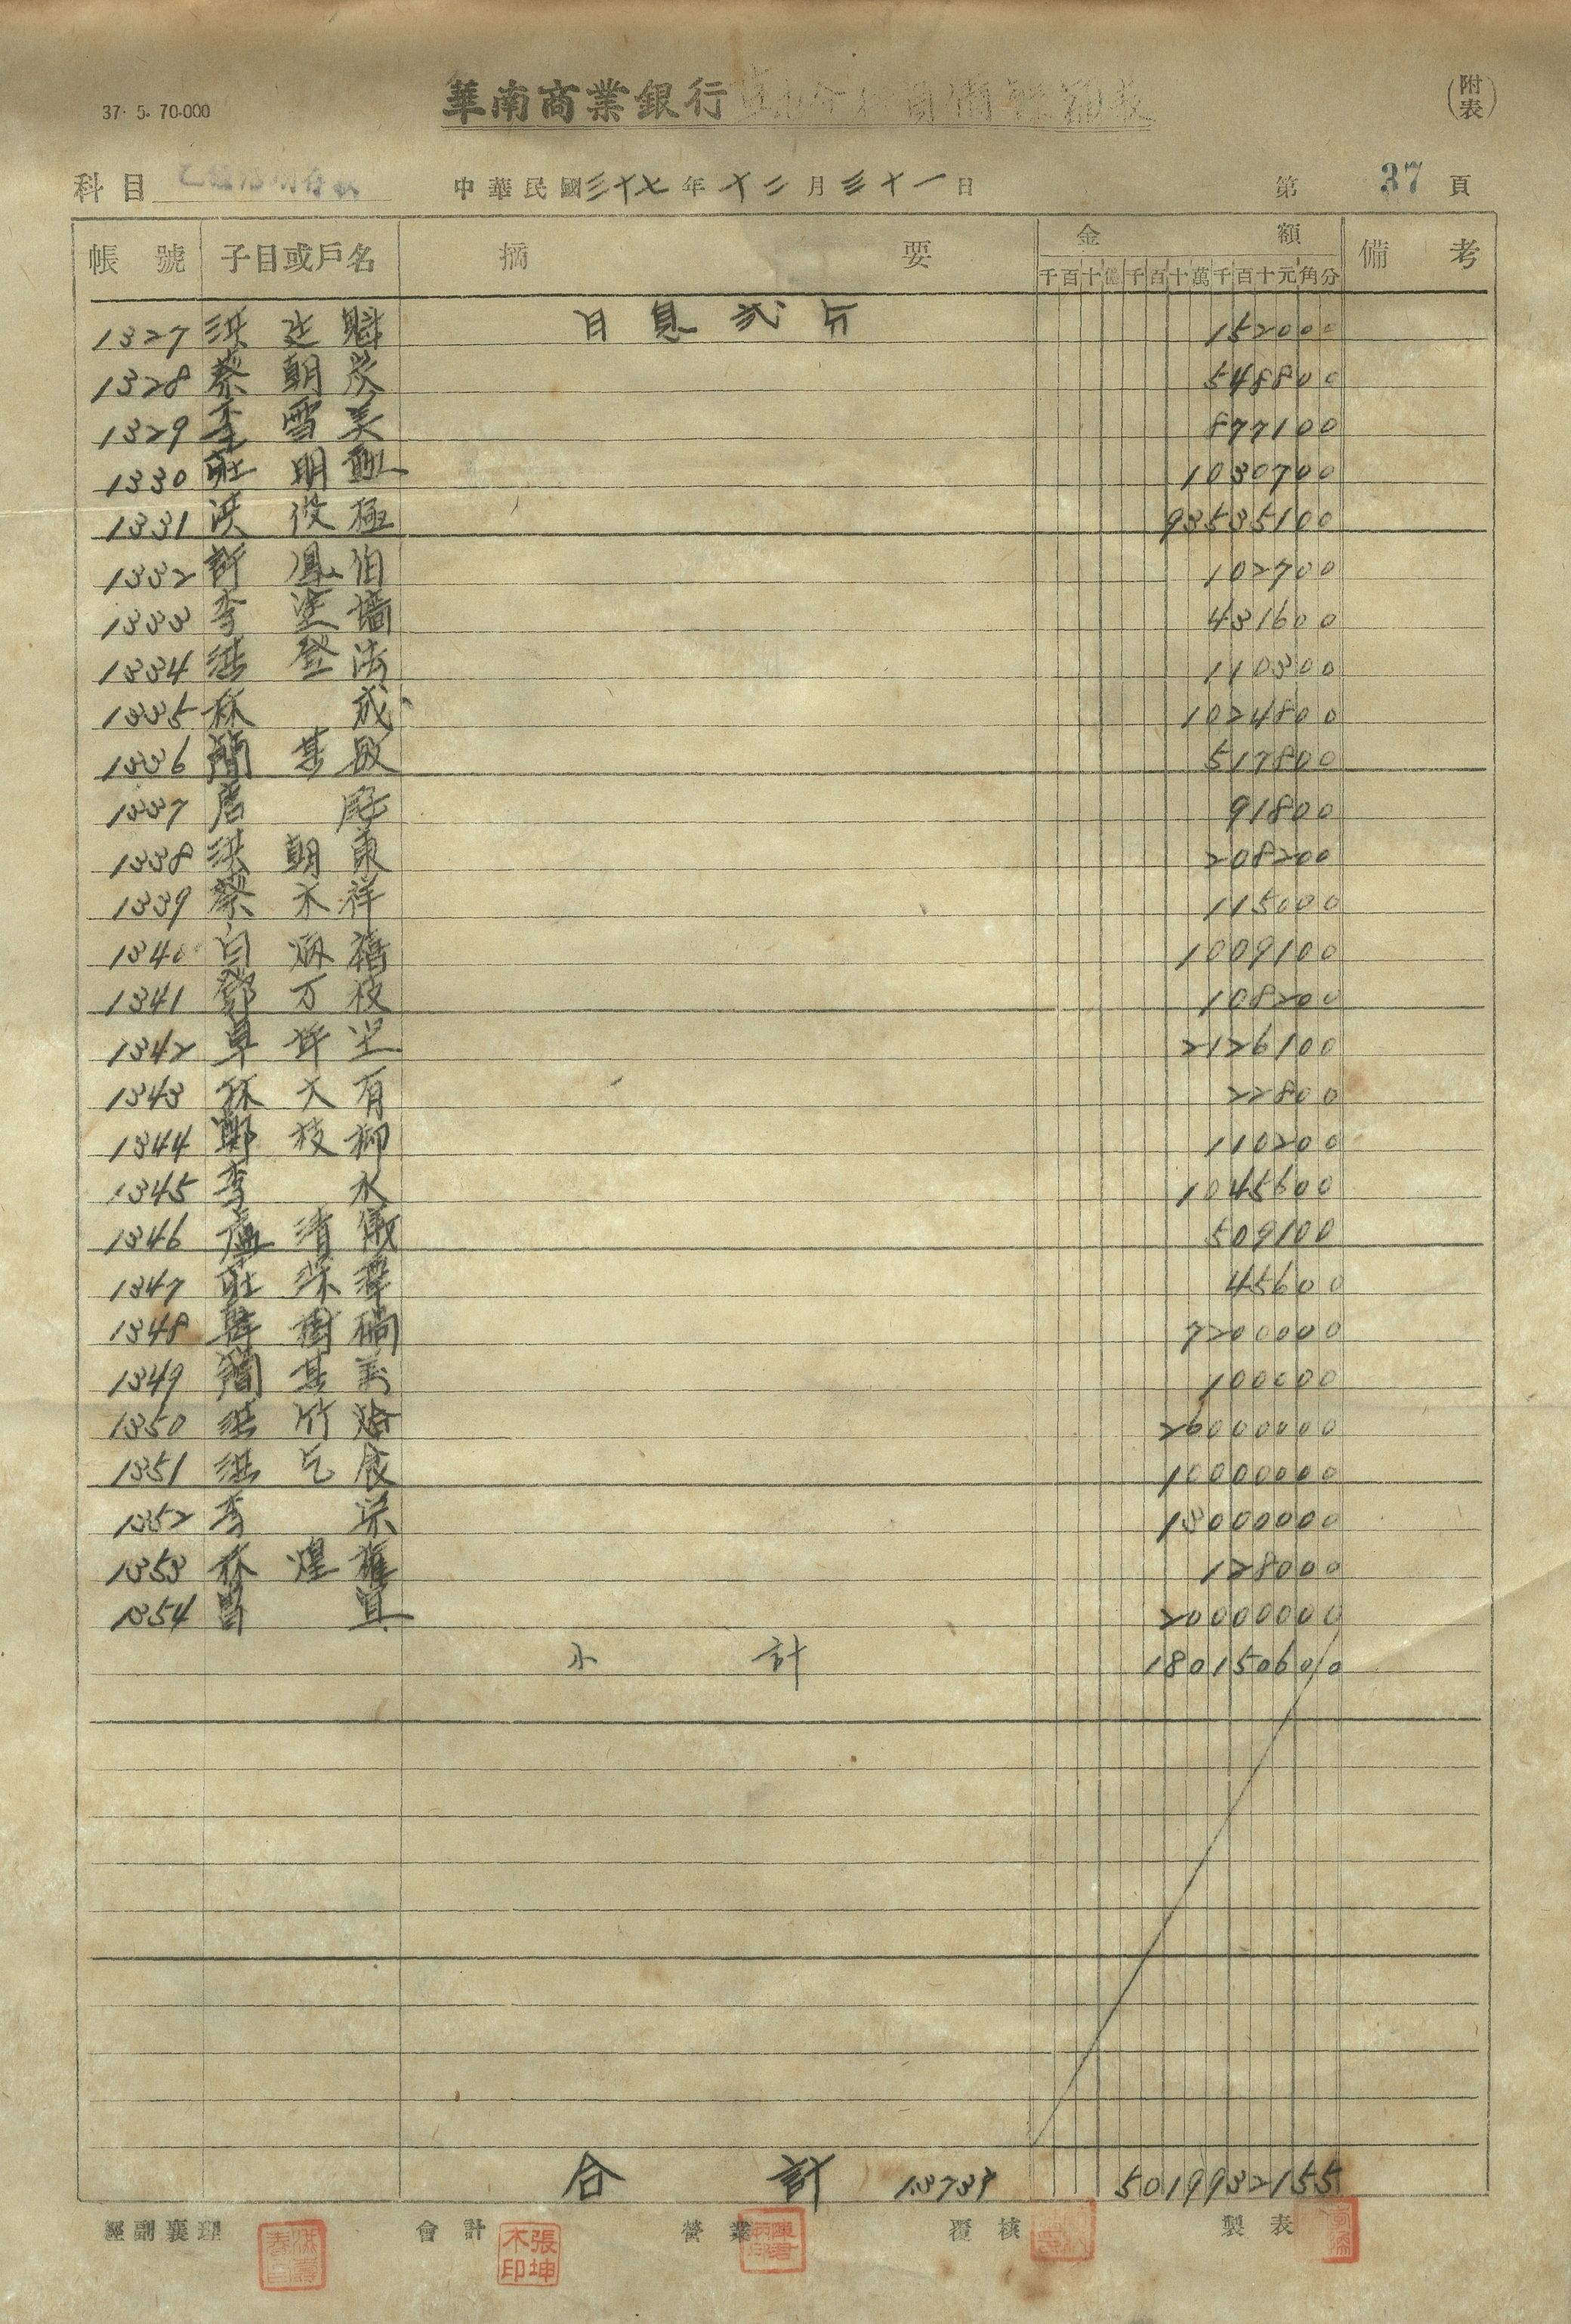 37. 5. 70.000
華南商業銀行
(附表)
科目 乙種活期存款 中華民國三十七年十二月三十一日 第37頁
帳號 子目或戶名 摘要 金額 備考
千百十億千百十萬千百十元角分
1327 洪 魁 日息弐分 152000
1328 蔡朝炭 548800
1329 李雪美 877100
1330 莊明 1030700
1331 洪 極 93535100
1332 許 伯 102700
1333 李 墻 431600
1334 洪登法 110300
1335 林成 1024800
1336 簡其 517800
1337 91800
1338 洪朝東 208200
1339 蔡木祥 115000
1340 白 1009100
1341 鄧万枝 108200
1342 卓 2126100
1343 林天有 22800
1344 鄭枝柳 110200
1345 李水 1045600
1346 盧清 509100
1347 莊 45600
1348 樹 7200000
1349 簡其 100000
1350 洪竹 26000000
1351 洪乞食 10000000
1352 李栄 13000000
1353 林煌 128000
1354 20000000
小計 180150600
合計 13739 5019932155
經副襄理 會計 營業 覆核 製表
張坤木印